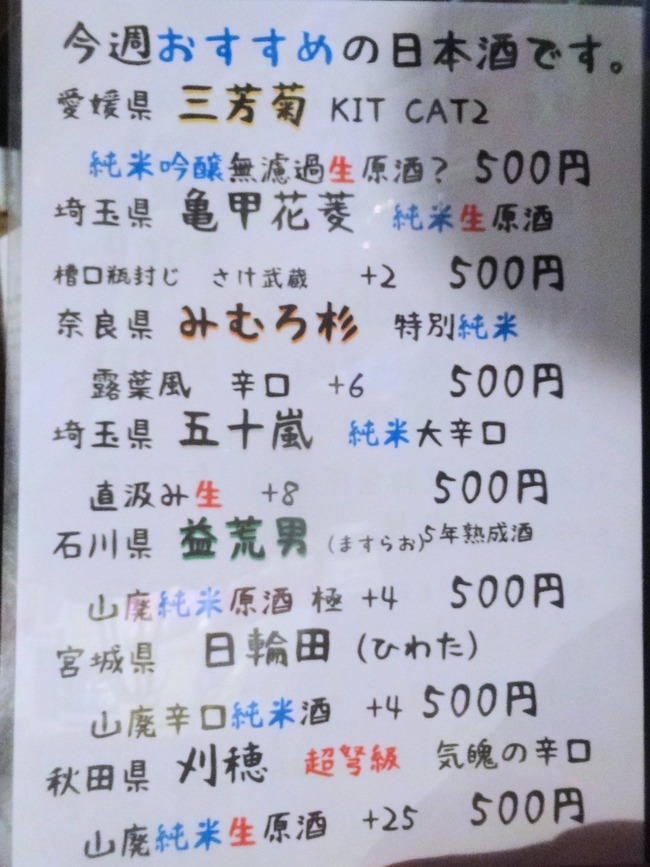 今週おすすめの日本酒です。
愛媛県 三芳菊 KIT CAT2
純米吟醸無濾過生原酒? 500円
埼玉県 亀甲花菱 純米生原酒
槽口瓶封じ さけ武蔵 +2 500円
奈良県 みむろ杉 特別純米
露葉風 辛口 +6 500円
埼玉県 五十嵐 純米大辛口
直汲み生 +8 500円
石川県 益荒男 (ますらお)5年熟成酒
山廃純米原酒 極 +4 500円
宮城県 日輪田 (ひわた)
山廃辛口純米酒 +4 500円
秋田県 刈穂 超弩級 気魄の辛口
山廃純米生原酒 +25 500円